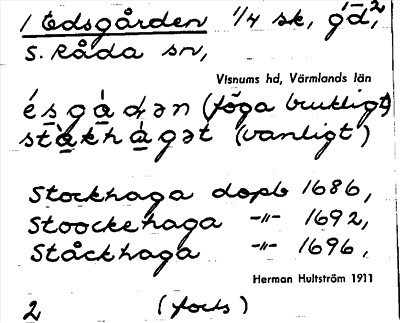 1 Edsgården 1/4 sk, gd,2
S. Råda sn,
Visnums hd, Värmlands län
(föga brukligt)
(vanligt)
Stockhaga dopb 1686,
Stoockehaga -"- 1692,
Ståckhaga -"- 1696,
Herman Hultström 1911
2 (forts)